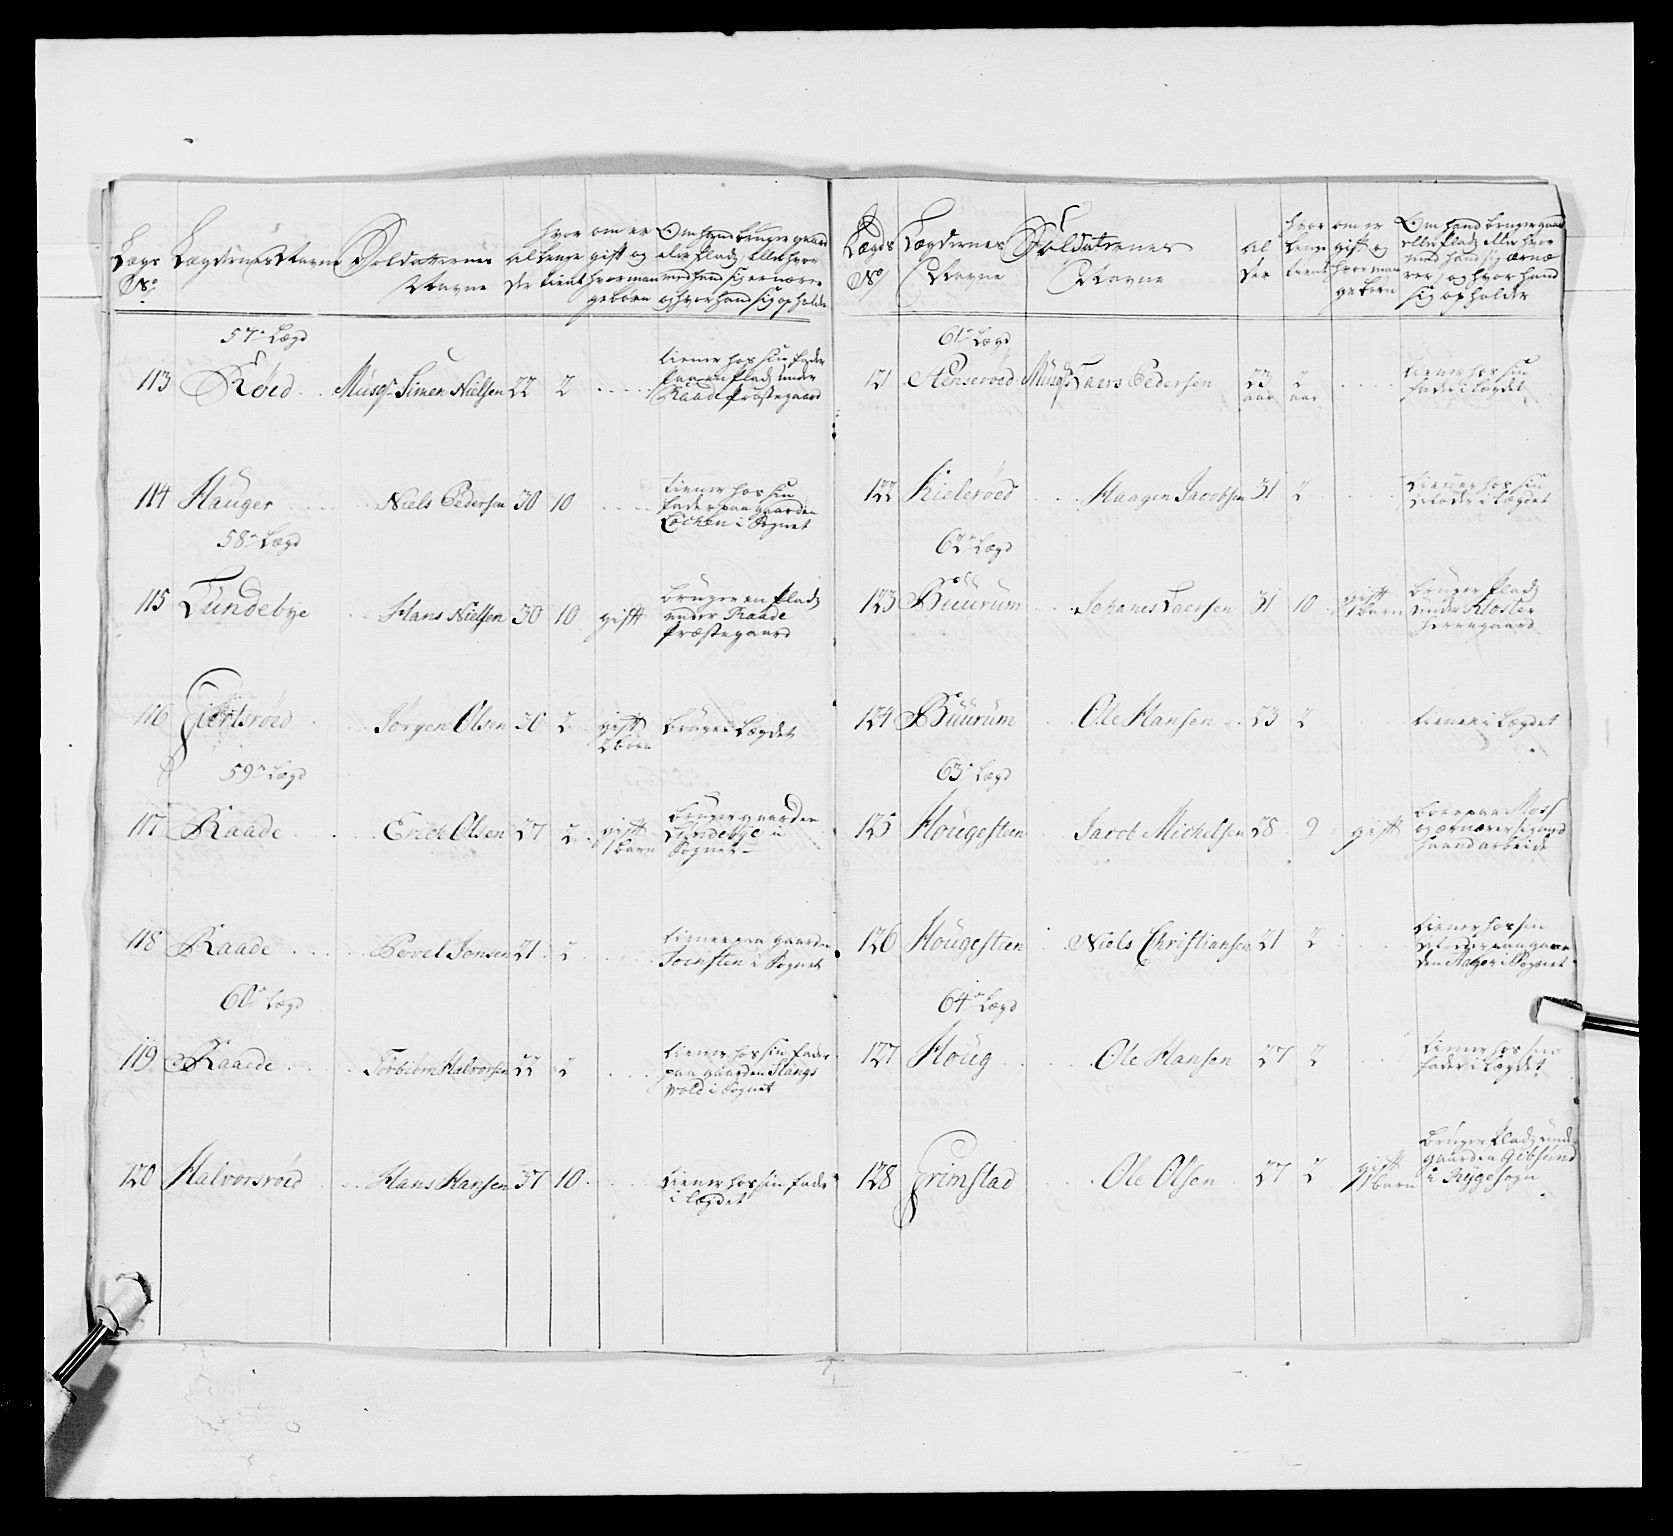 Lægs No. Lægdernes Navne Soldatternes Navne Alder hvor lenge tient om er gift og hvor man gebörn Om hand bruger gaard eler Plads, Eller hvor med hand sig ernærer og hvor hand sig opholder
57de Lægd
113 Röed Musqr Simen Nielsen 22 2 tiener hos sin fader
paa en Plads under
Raade Præstegaard
114 Hauger Niels Pedersen 30 10 tiener hos sin
fader paa gaarden
i Sognet
58de Lægd
115 Lundebye Hans Nielsen 30 10 gift bruger en Plads
under Raade
Præstegaard
116 Jörgen Olsen 30 2 gift 2 born bruger Lægdet
59de Lægd
117 Raade Erich Olsen 27 2 gift 1 barn bruger gaarden
Lundebye i
Sognet
118 Raade Povel Jonsen 21 2 tiener paa gaarden
i Sognet
60de Lægd
119 Raade Torbiörn Halvorsen 22 2 tiener hos sin fader
paa gaarden Slangs
vold i Sognet
120 Halvorsröed Hans Hansen 37 10 tiener hos sin fader
i Lægdet
Lægds No Lægdernes Navne Soldaternes Navne Alder hvor lenge tient om er gift og hvor man geborn Om hand bruger gaard eller Plads, Eller hvor med hand sig ærnærer, og hvor hand sig opholder
61de Lægd
121 Stenseröed Musqr Laers Pedersen 23 aar 2 aar tiener hos sin
fader i Lægdet
122 Kieleröed Haagen Jacobsen 31 2 tiener hos sin
i Lægdet
62de Lægd
123 Buurum Johanes Laersen 31 10 gift 1 barn bruger Plads
under Kloster
herregaard
124 Buurum Ole Hansen 23 2 tiener i Lægdet
63de Lægd
125 Hougesteen Jacob Michelsen 28 9 gift boer paa Moss
og ernærer sig med
haand arbeide
126 Hougesteen Niels Christiansen 21 2 tiener hos sin
paa gaar
den i Sognet
64de Lægd
127 Houg Ole Hansen 27 2 tiener hos sin
fader i Lægdet
128 Grimstad Ole Olsen 27 2 gift 1 barn bruger Plads under
gaarden Gibsund
i Rygge sogn